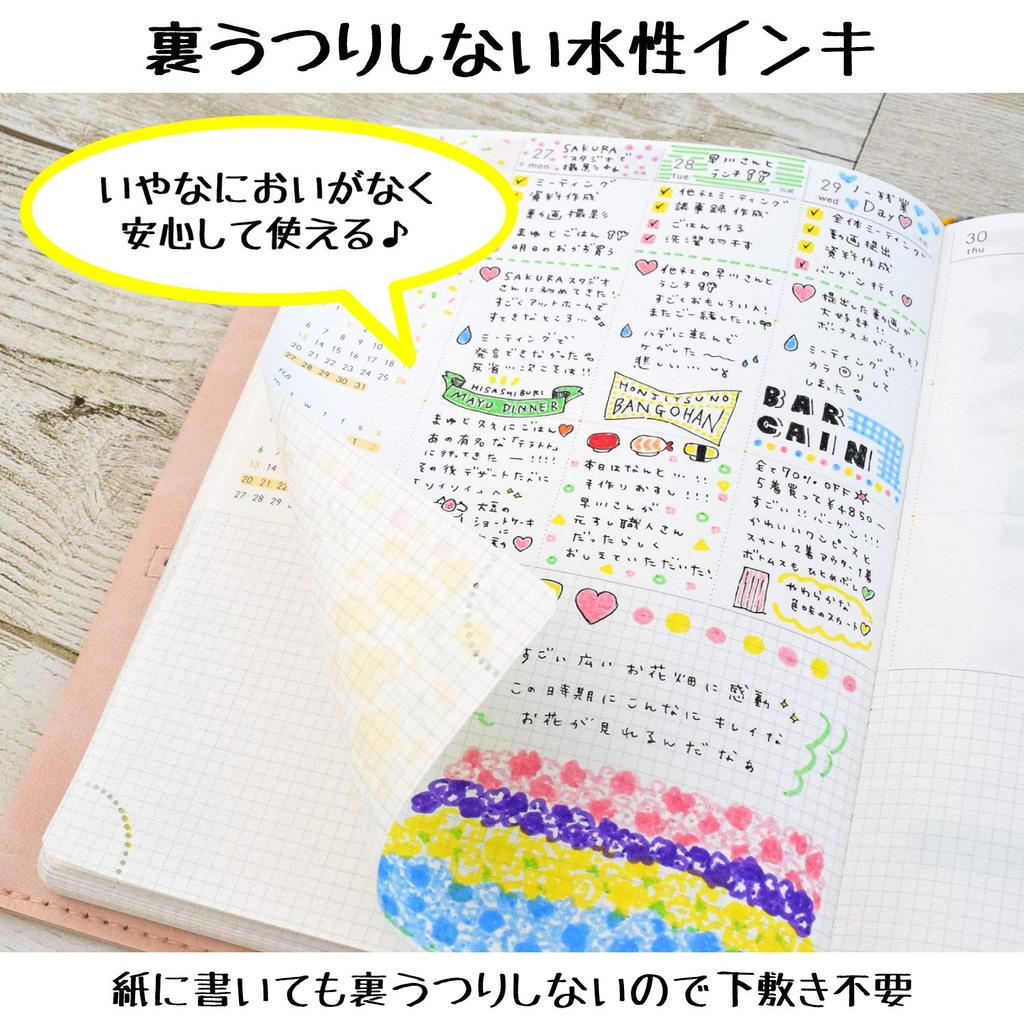 裏うつりしない水性インキ
いやなにおいがなく
安心して使える♪
27
mon
SAKURA
スタジオで
撮影
ミーティング
資料作成
動画撮影
まゆとごはん
明日のおうち買う
SAKURAスタジオ
さんに初めてきた!
すごくアットホームで
すてきなところ…
ミーティングで
発言できなかった
反省…次こそは!!
HISASHIBURI
MAYU DINNER
まゆと久々にごはん
あの有名な「テラトト」
に行ってきたー!!!!
その後デザートたべに
「ソイソイ」へ
大豆の
ショートケーキ
に
28
tue
早川さんと
ランチ
他社ミーティング
議事録作成
ごはん作る
洗濯物干す
他社の早川さんと
ランチ
すごくおもしろい人!
またご一緒したい
ハデに転んで
ケガした
悲しい…
HONJITSUNO
BANGOHAN
本日はなんと…!!!
手作りおすし!!!
早川さんが
元すし職人さん
だったらしく
おしえていただいた!
29
wed
ノー残業
Day
全体ミーティング
動画提出
資料作成
バーゲン行く
提出した動画が
大好評!!
ボーナス上がるかも?
ミーティングで
カラ回りして
しまった
BAR
GAIN
全て70%OFF
5着買って¥4850-
すごい!!バーゲン!!
かわいいワンピースと
スカート2着アウター1着
ボトムスもひとめぼれ
やわらかな
色味のスカート
30
thu
6 7 8 9 10 11
13 14 15 16 17 18
20 21 22 23 24 25 26
27 28 29 30 31
w t f s s
1 2
6
13 14
20 21 22
27 28 29
すごい広いお花畑に感動
この時期にこんなにキレイな
お花が見れるんだなぁ
紙に書いても裏うつりしないので下敷き不要